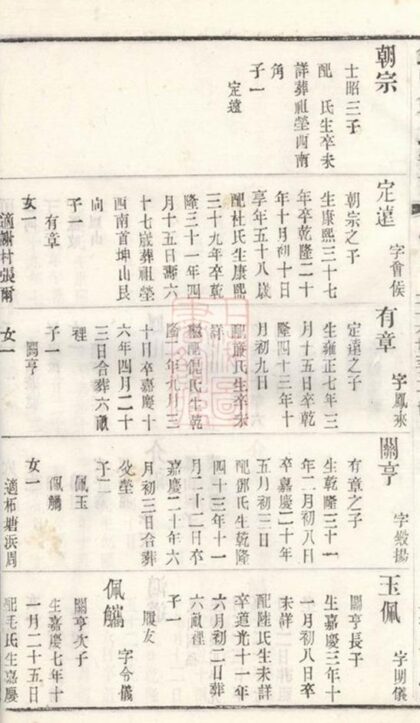 朝宗
士昭三子
配 氏生卒未
詳葬祖塋西南
角
子一
定遠
定遠
字會侯
朝宗之子
生康熙三十七
年卒乾隆二十
年十月初十日
享年五十八歲
配杜氏生康熙
三十九年卒乾
隆三十一年四
月十五日壽六
十七歲葬祖塋
西南首坤山艮
向
子一
有章
女一
適謝村張爾
有章
字鳳來
定遠之子
生雍正七年三
月十五日卒乾
隆四十三年十
月初九日
配嚴氏生卒未
詳
氏生乾
隆二年九月三
十日卒嘉慶十
六年四月二十
三日合葬六畝
裡
子一
關亨
女一
關亨
有章之子
生乾隆三十一
年二月初八日
卒嘉慶二十年
五月初三日
配鄧氏生乾隆
四十三年十一
月二十二日卒
嘉慶二十年六
月初三日合葬
父塋
子二
佩玉
佩觿
女一
適布塘浜周
玉佩
字明儀
關亨長子
生嘉慶三年十
一月初八日卒
未詳
配陸氏生未詳
卒道光十一年
六月初二日葬
六畝裡
子一
履友
佩觿
字令儀
關亨次子
生嘉慶七年十
一月二十五日
配毛氏生嘉慶